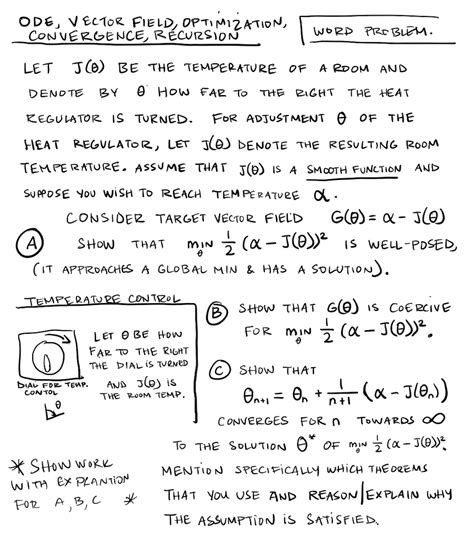 ODE, VECTOR FIELD, OPTIMIZATION,
CONVERGENCE, RECURSION
WORD PROBLEM.
LET J(θ) BE THE TEMPERATURE OF A ROOM AND
DENOTE BY θ HOW FAR TO THE RIGHT THE HEAT
REGULATOR IS TURNED. FOR ADJUSTMENT θ OF THE
HEAT REGULATOR, LET J(θ) DENOTE THE RESULTING ROOM
TEMPERATURE. ASSUME THAT J(θ) IS A SMOOTH FUNCTION AND
SUPPOSE YOU WISH TO REACH TEMPERATURE α.
CONSIDER TARGET VECTOR FIELD G(θ) = α - J(θ)
(A) SHOW THAT min_θ 1/2 (α - J(θ))² IS WELL-POSED,
(IT APPROACHES A GLOBAL MIN & HAS A SOLUTION).
TEMPERATURE CONTROL
LET θ BE HOW
FAR TO THE RIGHT
THE DIAL IS TURNED
AND J(θ) IS
THE ROOM TEMP.
DIAL FOR TEMP.
CONTOL
θ
(B) SHOW THAT G(θ) IS COERCIVE
FOR min_θ 1/2 (α - J(θ))².
(C) SHOW THAT
θ_{n+1} = θ_n + 1/(n+1) (α - J(θ_n))
CONVERGES FOR n TOWARDS ∞
TO THE SOLUTION θ* OF min_θ 1/2 (α - J(θ))².
MENTION SPECIFICALLY WHICH THEOREMS
THAT YOU USE AND REASON/EXPLAIN WHY
THE ASSUMPTION IS SATISFIED.
* SHOW WORK
WITH EXPLANTION
FOR A, B, C *